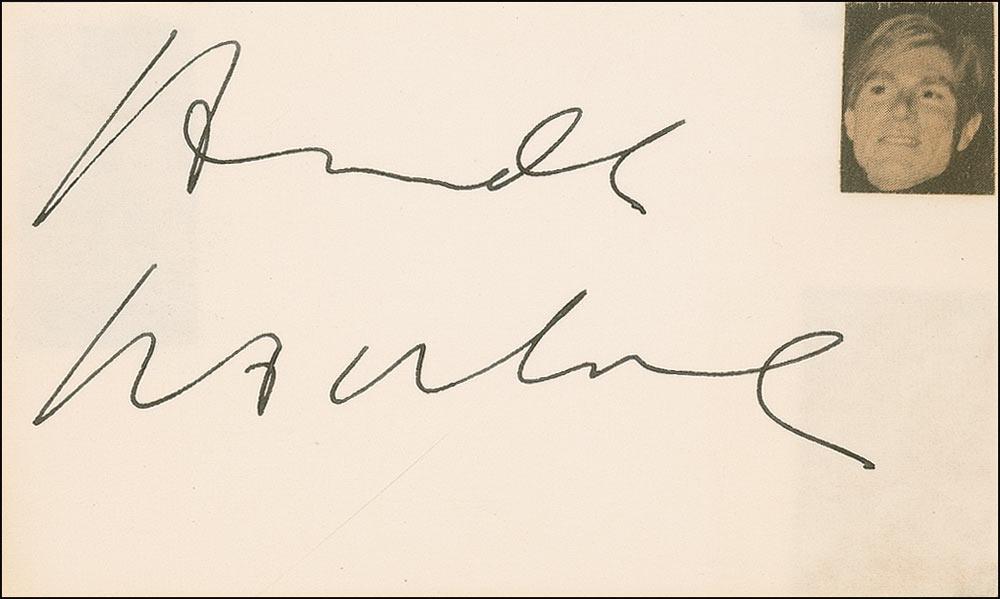 Andy
Warhol